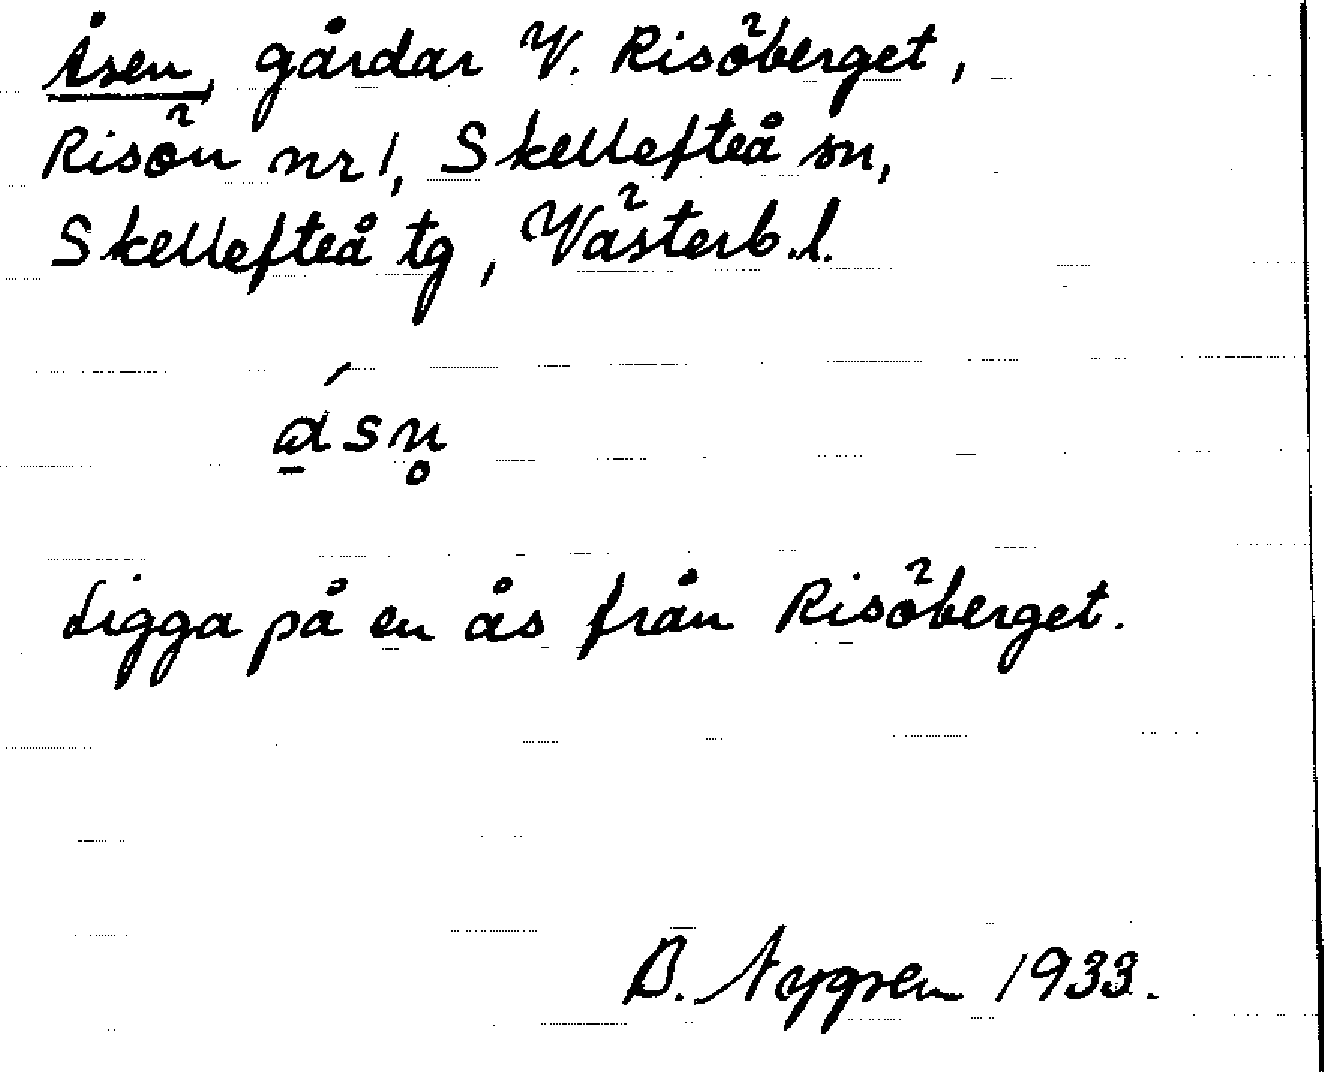 Åsen, gårdar V. Risöberget,
Risön nr 1, Skellefteå sn,
Skellefteå tg, Västerb. l.
á̱sn̥
Ligga på en ås från Risöberget.
B. Nygren 1933.